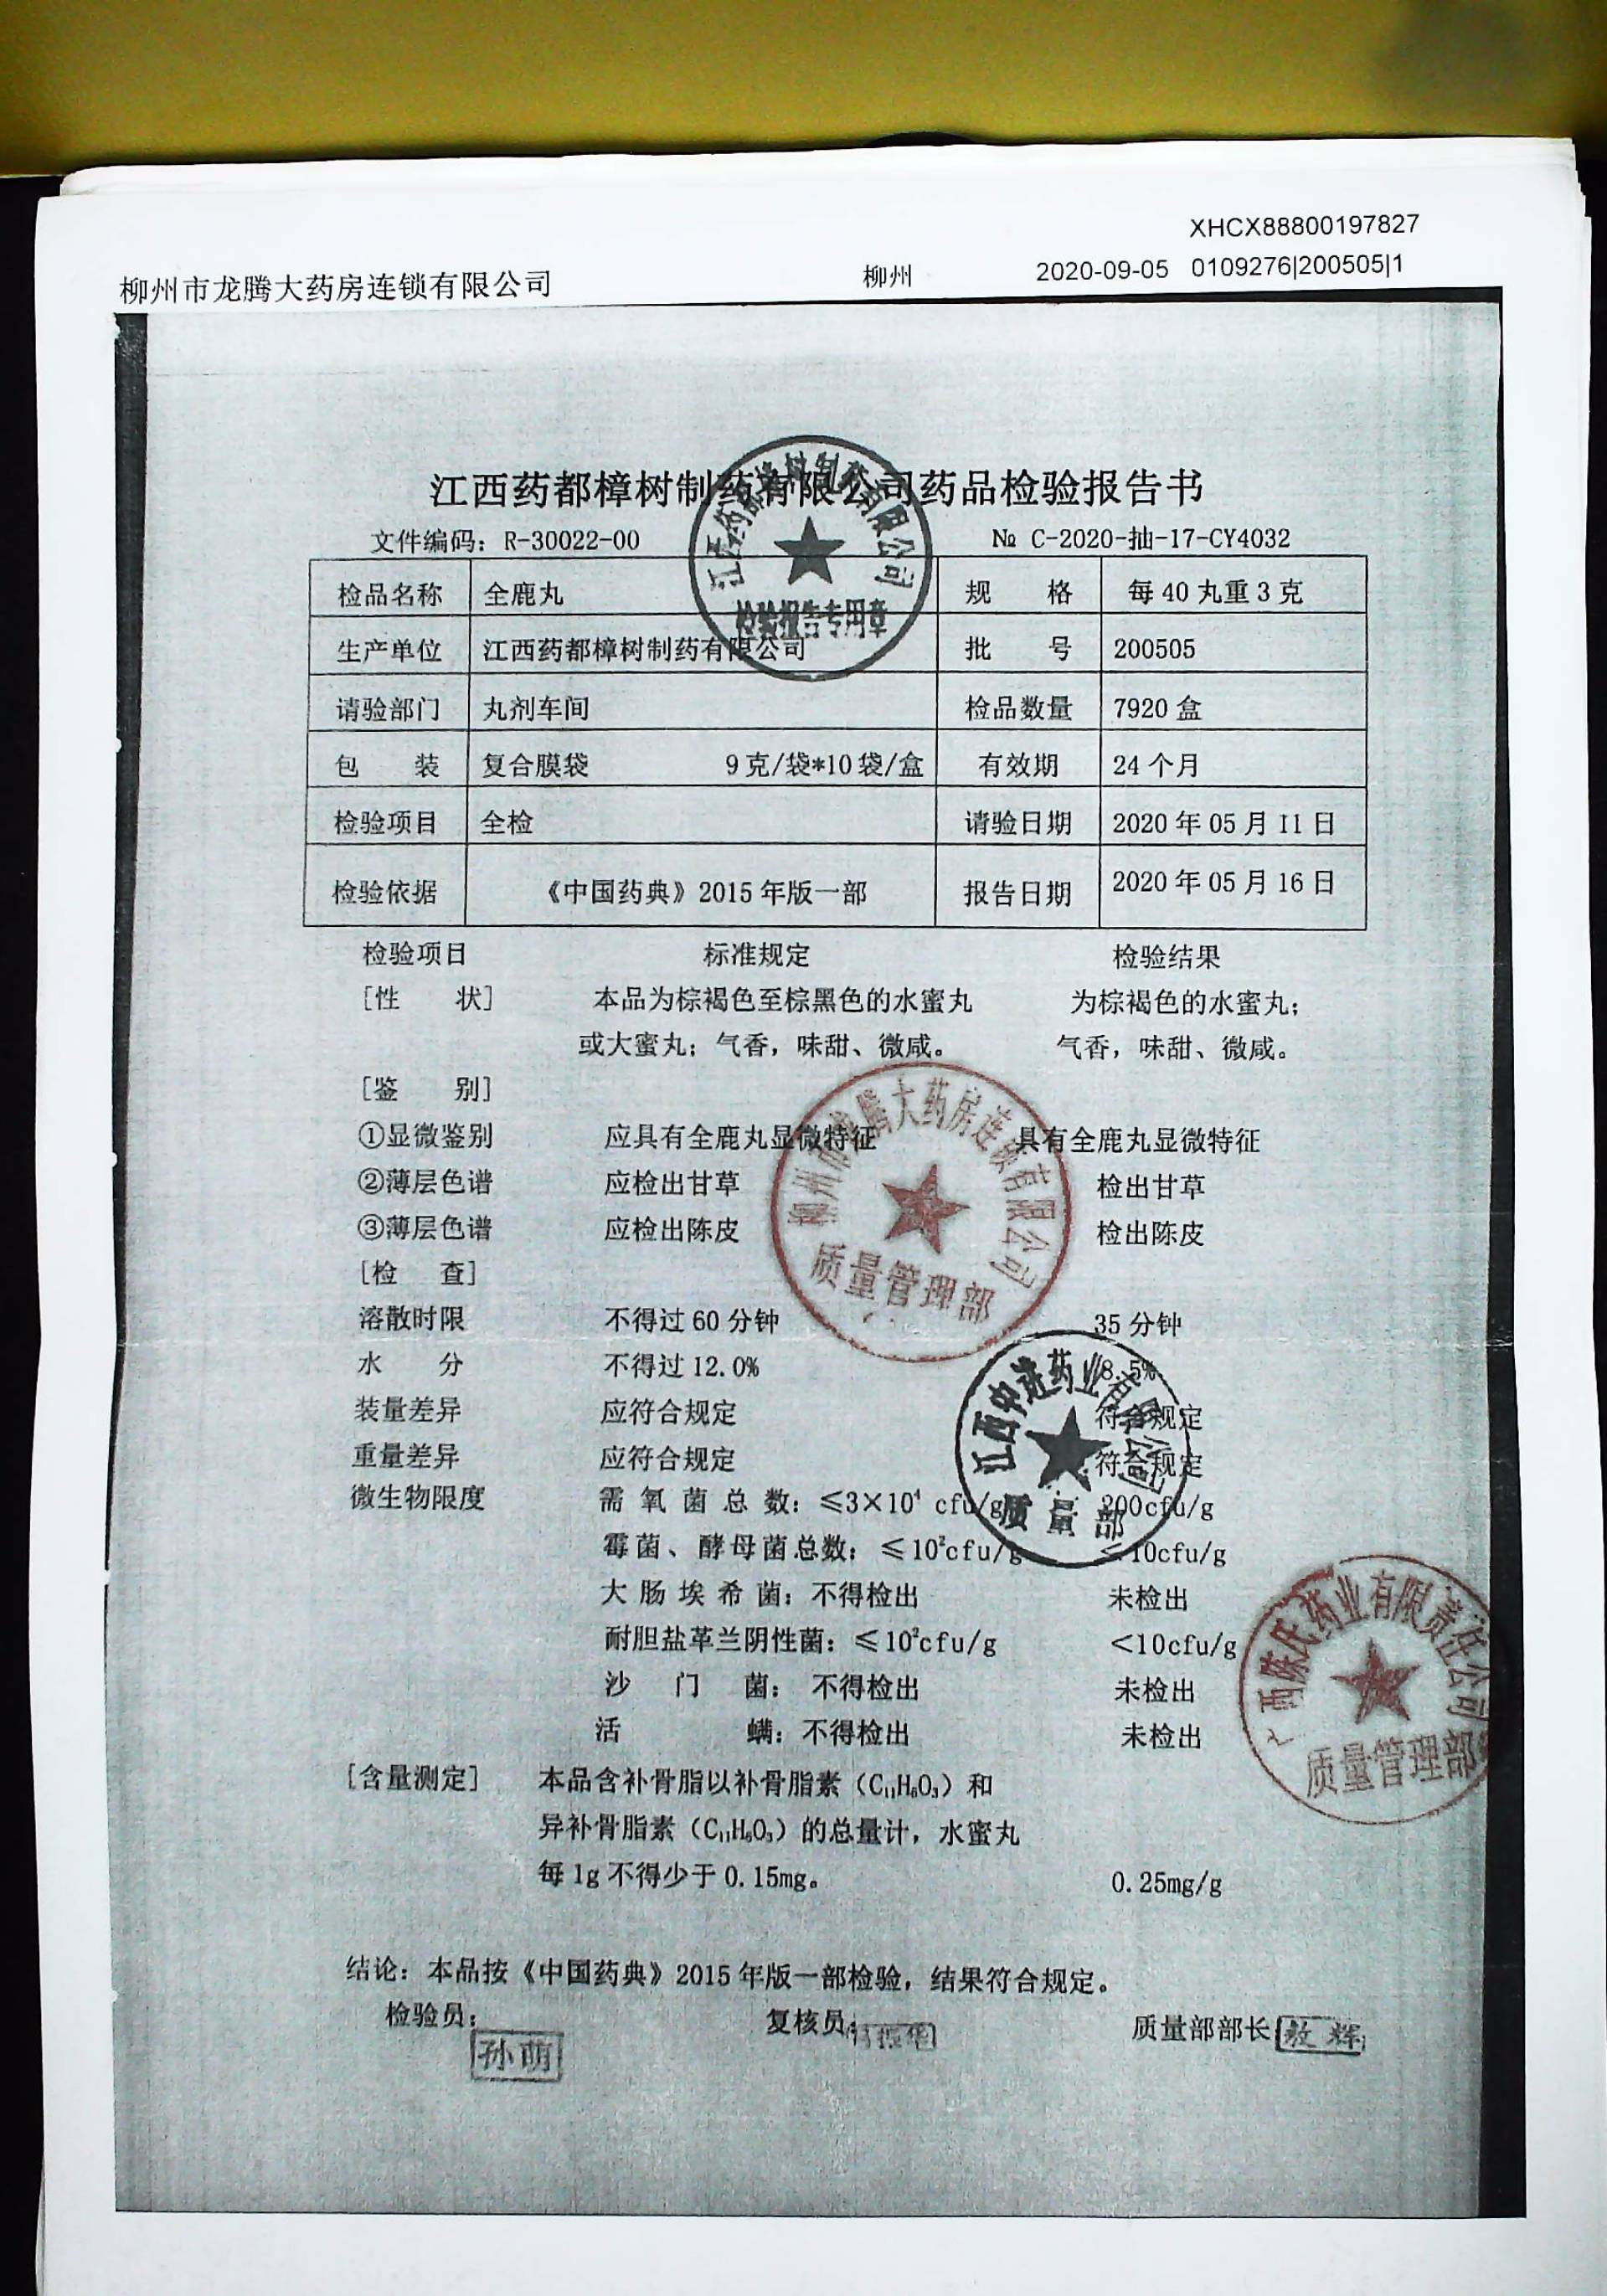 XHCX88800197827
柳州市龙腾大药房连锁有限公司 柳州 2020-09-05 0109276|200505|1
江西药都樟树制药有限公司药品检验报告书
文件编码：R-30022-00 № C-2020-抽-17-CY4032
江西药都樟树制药有限公司
检验报告专用章
检品名称 全鹿丸 规 格 每40丸重3克
生产单位 江西药都樟树制药有限公司 批 号 200505
请验部门 丸剂车间 检品数量 7920盒
包 装 复合膜袋 9克/袋*10袋/盒 有效期 24个月
检验项目 全检 请验日期 2020年05月11日
检验依据 《中国药典》2015年版一部 报告日期 2020年05月16日
检验项目 标准规定 检验结果
[性 状] 本品为棕褐色至棕黑色的水蜜丸 为棕褐色的水蜜丸；
或大蜜丸；气香，味甜、微咸。 气香，味甜、微咸。
[鉴 别]
①显微鉴别 应具有全鹿丸显微特征 具有全鹿丸显微特征
②薄层色谱 应检出甘草 检出甘草
③薄层色谱 应检出陈皮 检出陈皮
柳州市龙腾大药房连锁有限公司
质量管理部
[检 查]
溶散时限 不得过60分钟 35分钟
水 分 不得过12.0% 8.5%
装量差异 应符合规定 符合规定
重量差异 应符合规定 符合规定
江西中进药业有限公司
质量部
微生物限度 需氧菌总数：≤3×10⁴ cfu/g 200cfu/g
霉菌、酵母菌总数：≤10²cfu/g 10cfu/g
大肠埃希菌：不得检出 未检出
耐胆盐革兰阴性菌：≤10²cfu/g <10cfu/g
沙 门 菌：不得检出 未检出
活 螨：不得检出 未检出
广西陈氏药业有限责任公司
质量管理部
[含量测定] 本品含补骨脂以补骨脂素（C₁₁H₆O₃）和
异补骨脂素（C₁₁H₆O₃）的总量计，水蜜丸
每1g不得少于0.15mg。 0.25mg/g
结论：本品按《中国药典》2015年版一部检验，结果符合规定。
检验员： 孙萌 复核员： 质量部部长 敖辉